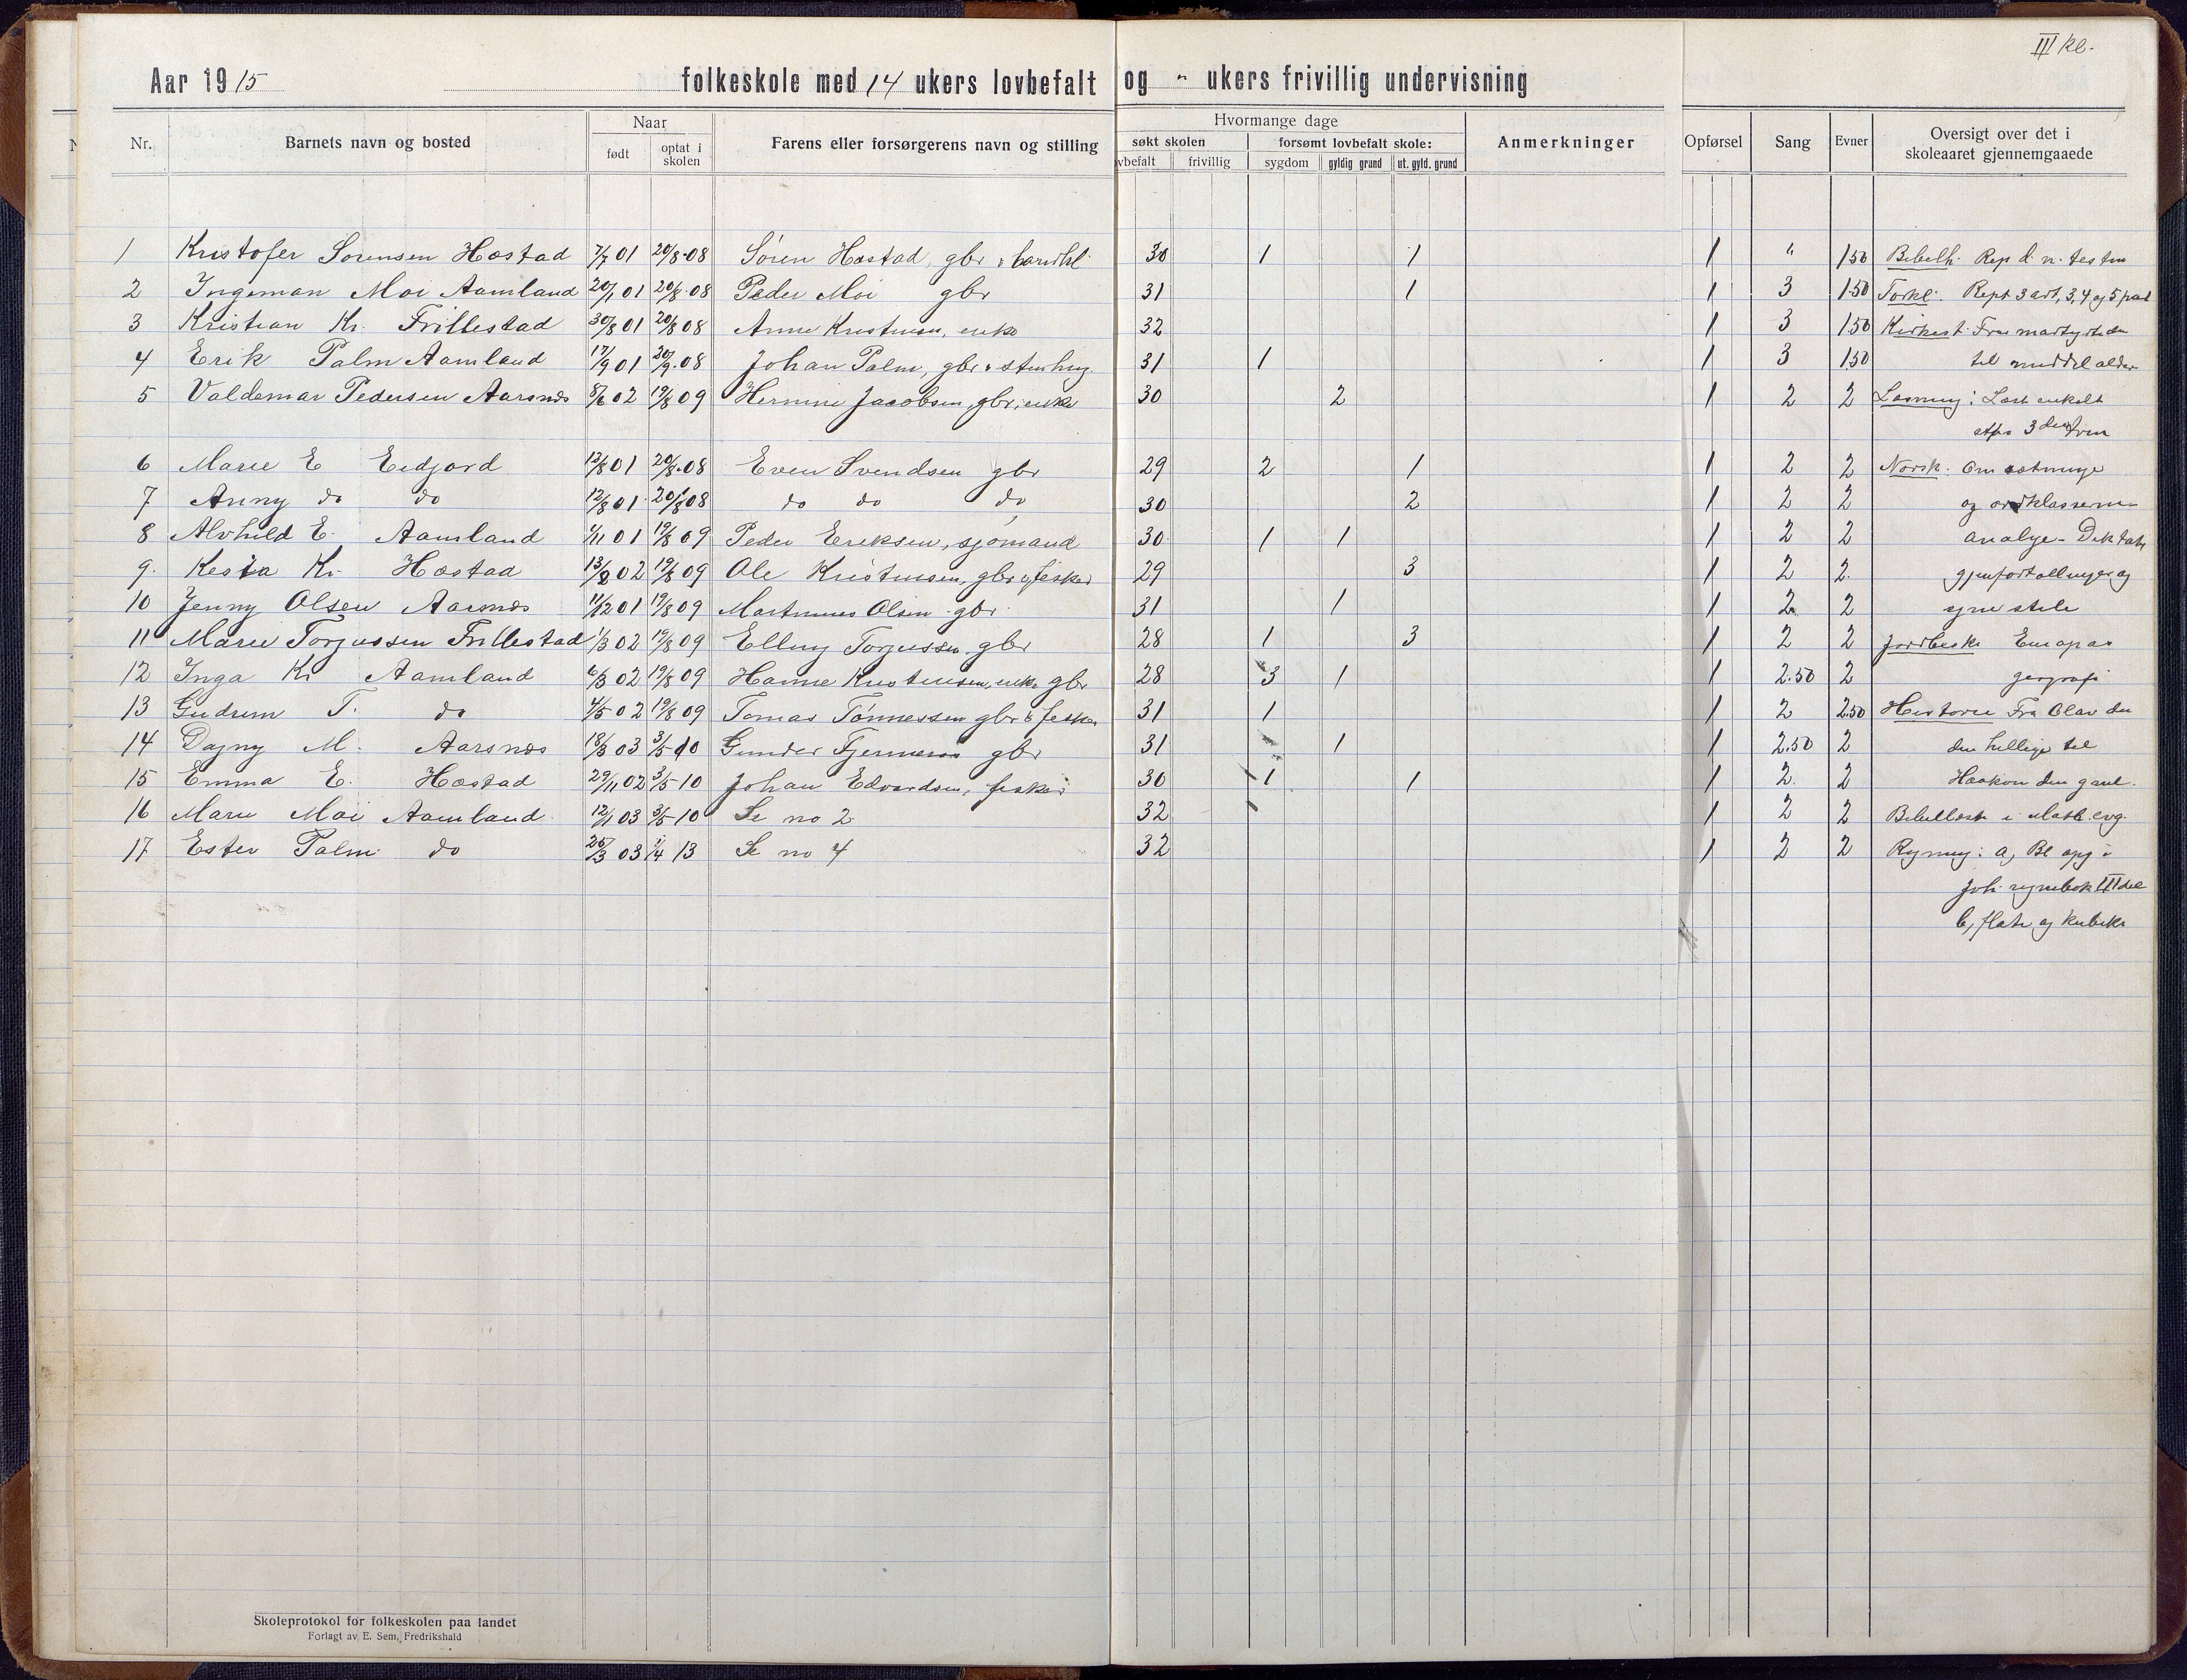 III kl.
Aar 1915 folkeskole med 14 ukers lovbefalt og " ukers frivillig undervisning
Nr. Barnets navn og bosted Naar født optat i skolen Farens eller forsørgerens navn og stilling Hvormange dage søkt skolen forsømt lovbefalt skole: Anmerkninger Opførsel Sang Evner Oversigt over det i skoleaaret gjennemgaaede
vbefalt frivillig sygdom gyldig grund ut. gyld. grund
1 Kristofer Sørensen Hæstad 7/7 01 20/8-08 Søren Hæstad, gbr 30 1 1 1 " 1.50 Bibelh. Rep d. n. testm
2 Ingeman Moi Aamland 20/1 01 20/8-08 Peder Moi gbr 31 1 1 3 1.50 Forkl. Rept 3 art, 3, 4 og 5 part
3 Kristian Kr. Frillestad 30/8 01 20/8 08 Anne Kristensen, enke 32 1 3 1.50 Kirkest. Fra martyrtiden
4 Erik Palm Aamland 17/9 01 20/9-08 Johan Palm, gbr & stenhug. 31 1 1 3 1.50 til middelalder
5 Valdemar Pedersen Aarsnæs 8/6 02 19/8 09 Hermine Jacobsen, gbr, enke 30 2 1 2 2 Læsning: Læst enkelt
efter 3
6 Marie E Eidjord 12/8 01 20/8-08 Even Svendsen gbr 29 2 1 1 2 2 Norsk: Om sætninge
7 Anny do do 12/8 01 20/8 08 do do do 30 2 1 2 2 og ordklasserne
8 Alvhild E. Aamland 1/11 01 19/8 09 Peder Eriksen, sjømand 30 1 1 1 2 2 analyse - Diktat
9. Kesia Kr. Hæstad 13/2 02 19/8 09 Ole Kristensen, gbr og fisker 29 3 1 2 2. gjenfortællinger og
10 Jenny Olsen Aarsnæs 11/12 01 19/8 09 Martinius Olsen gbr 31 1 1 2 2 egne stile
11 Marie Torjussen Frillestad 1/3 02 19/8 09 Elling Torjussen gbr 28 1 3 1 2 2 Jordbeskr Europas
12 Inga Kr Aamland 6/3 02 19/8 09 Hanne Kristensen, enke gbr 28 3 1 1 2.50 2 geografi
13 Gudrun T. do 4/5 02 19/8 09 Tomas Tønnessen gbr & fisker 31 1 1 2 2.50 Historie Fra Olav den
14 Dagny M. Aarsnæs 18/3 03 3/5-10 Gunder Fjermeros gbr 31 1 1 2.50 2 den hellige til
15 Emma E. Hæstad 29/11 02 3/5-10 Johan Edvardsen, fisker 30 1 1 1 2. 2 Haakon den gaml.
16 Marie Moi Aamland 12/1 03 3/5-10 Se no 2 32 1 2 2 Bibellæsn i Math. evg.
17 Ester Palm do 26/3 03 1/4 13 Se no 4 32 1 2 2 Regning: a, Bl opg i
Joh. regnebok III del
b, flate og kubikr
Skoleprotokol for folkeskolen paa landet
Forlagt av E. Sem, Fredrikshald